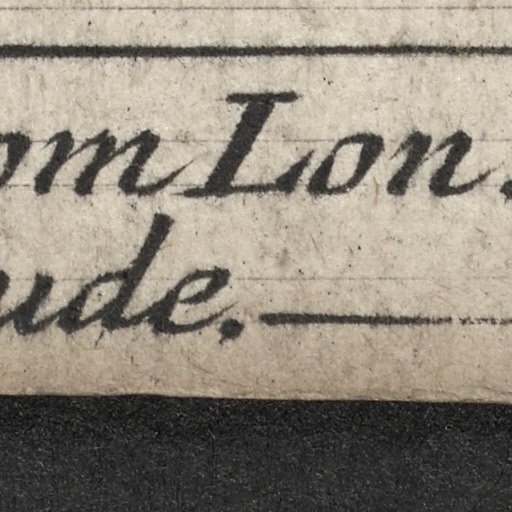 om Lon.
ude.